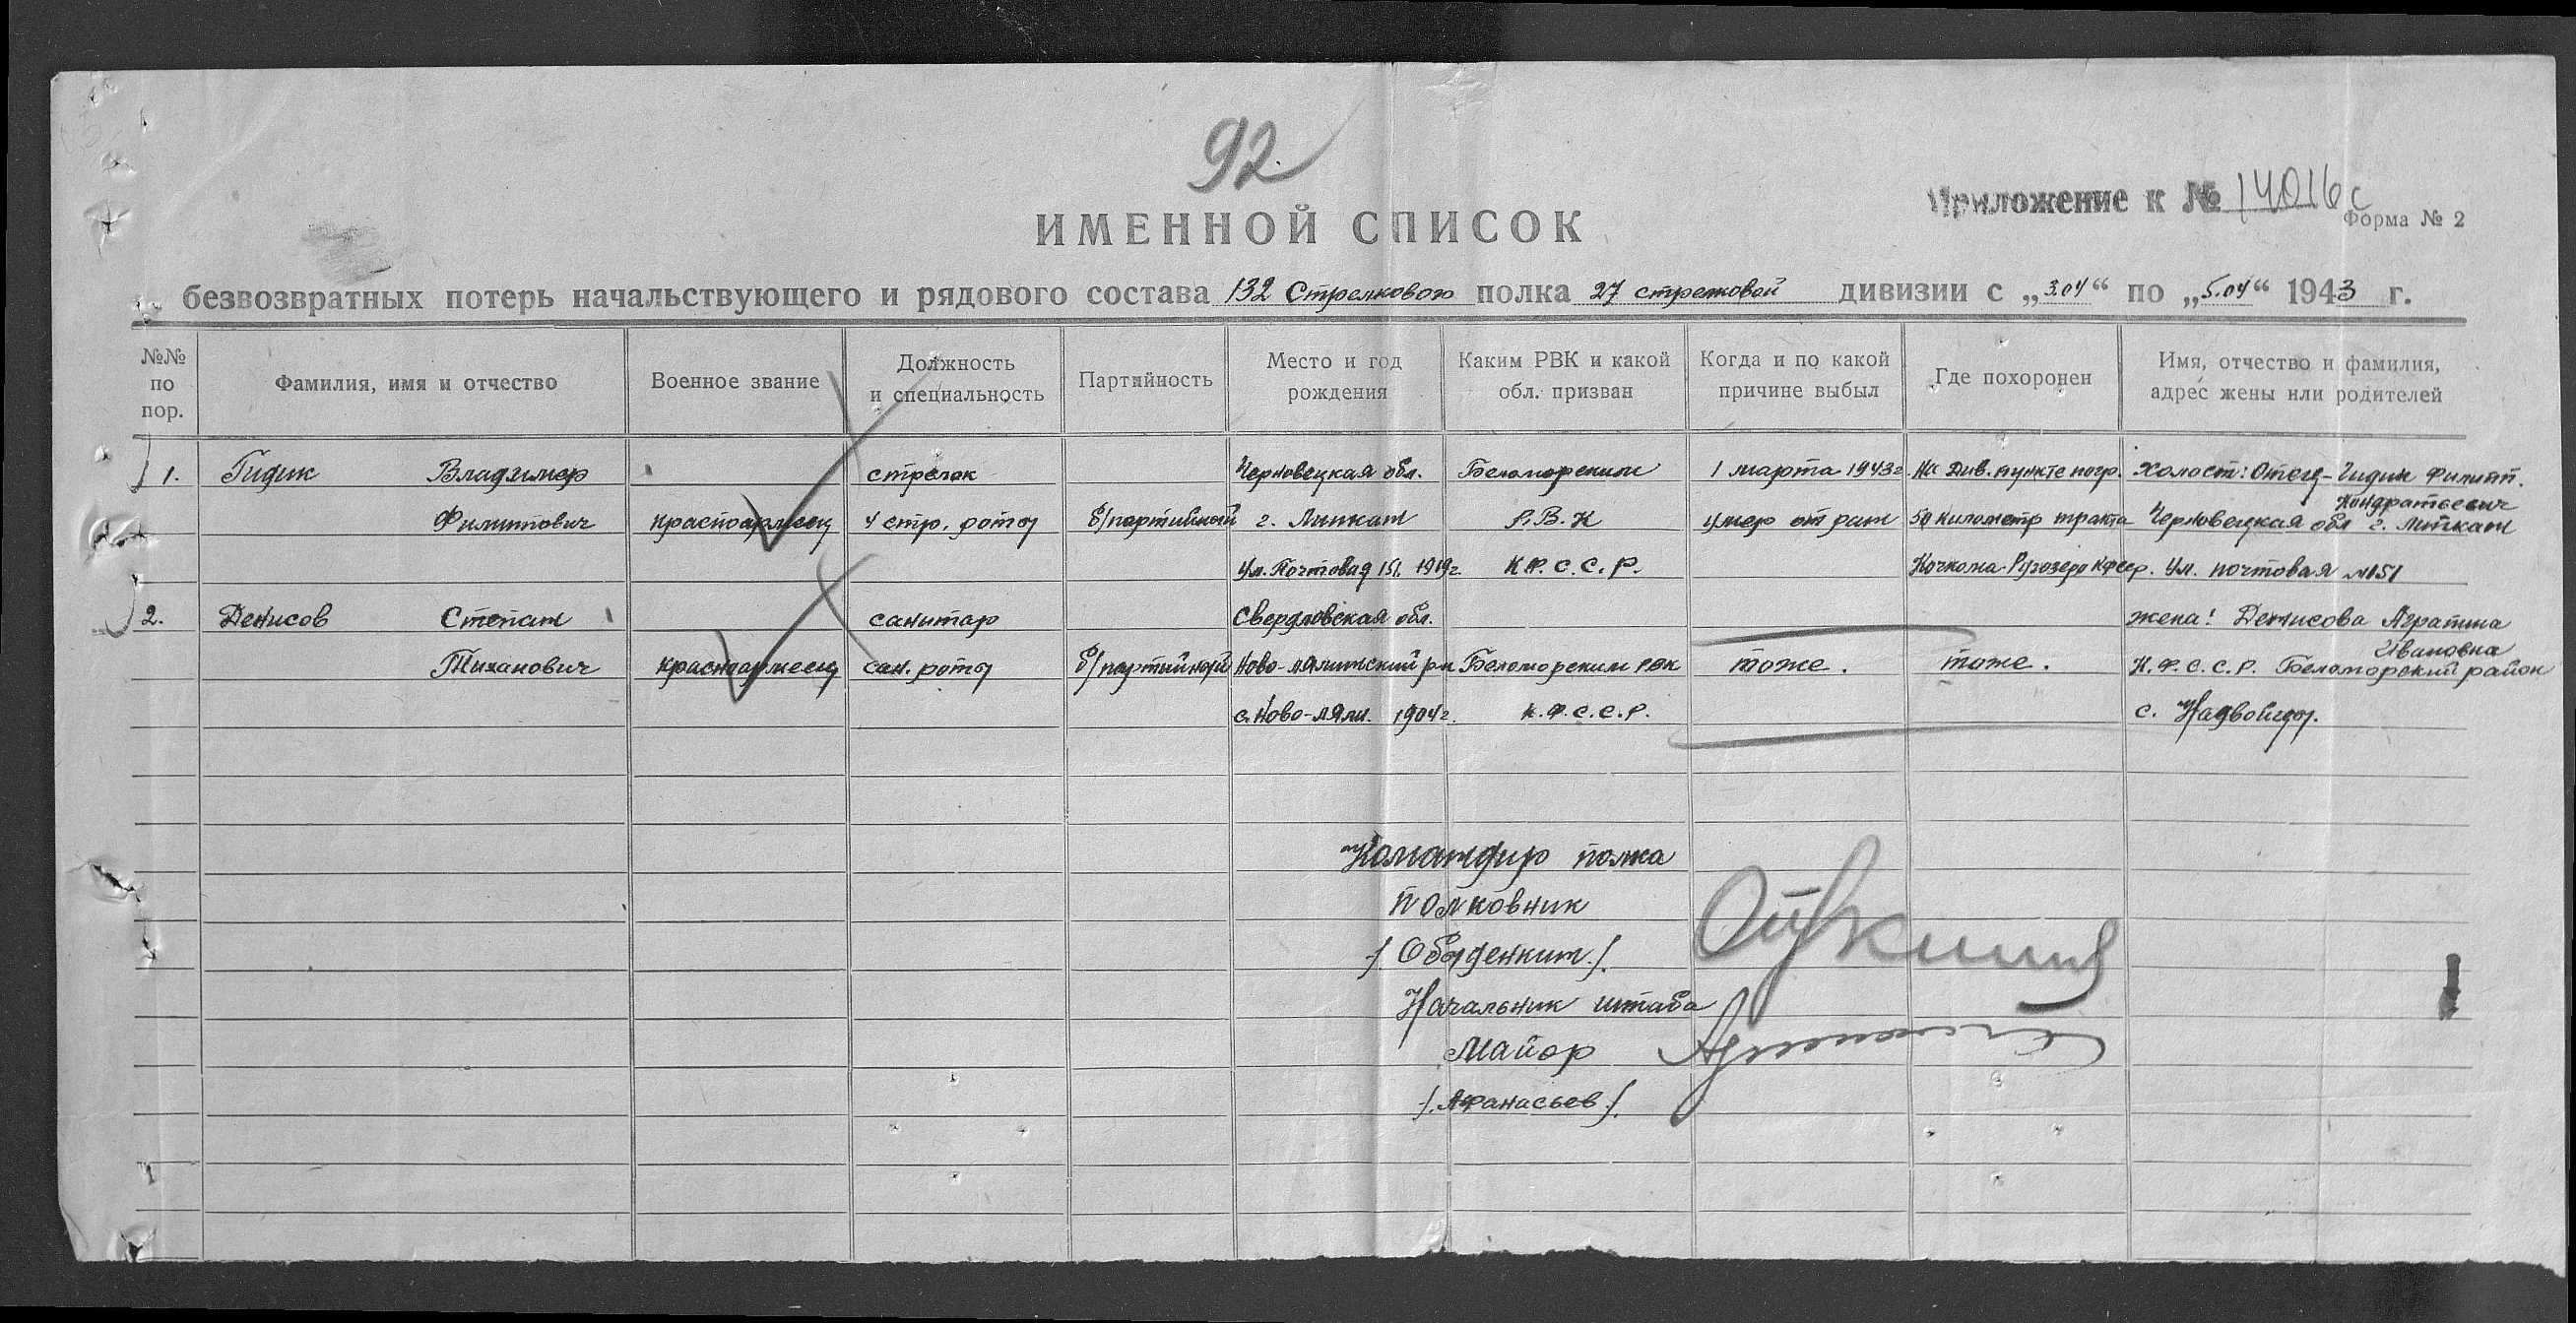 92
Приложение к № 14016с
Форма № 2
ИМЕННОЙ СПИСОК
безвозвратных потерь начальствующего и рядового состава 132 Стрелкового полка 27 стрелковой дивизии с „3.04“ по „5.04“ 1943 г.
№№ по пор.
Фамилия, имя и отчество
Военное звание
Должность и специальность
Партийность
Место и год рождения
Каким РВК и какой обл. призван
Когда и по какой причине выбыл
Где похоронен
Имя, отчество и фамилия, адрес жены или родителей
1. Гидик Владимер стрелок Черновецкая обл. Беломорским 1 марта 1943г. На див. пункте погр. Холост: Отец - Гидик Филипп.
Кондратьевич
Филиппович красноармеец 4 стр. роты б/партийный г. Липкан Р.В.К умер от ран 50 километр тракта Черновецкая обл г. Липкан
ул. Почтовая 151. 1919г. К.Ф.С.С.Р. Кочкома-Ругозеро КФССР. ул. почтовая №151
2. Денисов Степан санитар Свердловская обл. жена: Денисова Аграпина
Ивановна
Тиханович красноармеец сан. роты б/партийный Ново-лялинский рн Беломорским РВК тоже. тоже. К.Ф.С.С.Р. Беломорский район
с. Ново-ляли. 1904г. К.Ф.С.С.Р. с. Надвойцы.
Командир полка
полковник
/. Обыденкин /.
Начальник штаба
Майор
/. Афанасьев /.